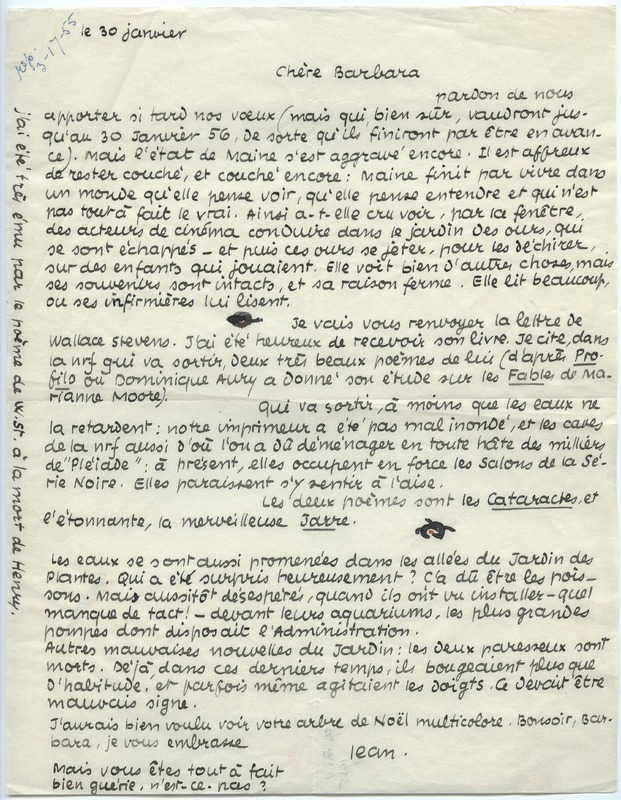 rép.
3-17-55
le 30 janvier
Chère Barbara
pardon de nous
apporter si tard nos vœux (mais qui, bien sûr, vaudront jus-
qu'au 30 Janvier 56, de sorte qu'ils finiront par être en avan-
ce). Mais l'état de Maine s'est aggravé encore. Il est affreux
de rester couché, et couché encore: Maine finit par vivre dans
un monde qu'elle pense voir, qu'elle pense entendre et qui n'est
pas tout à fait le vrai. Ainsi a-t-elle cru voir, par la fenêtre,
des acteurs de cinéma conduire dans le jardin des ours, qui
se sont échappés — et puis ces ours se jeter, pour les déchirer,
sur des enfants qui jouaient. Elle voit bien d'autres choses, mais
ses souvenirs sont intacts, et sa raison ferme. Elle lit beaucoup,
ou ses infirmières lui lisent.
Je vais vous renvoyer la lettre de
Wallace Stevens. J'ai été heureux de recevoir son livre. Je cite, dans
la nrf qui va sortir, deux très beaux poèmes de lui (d'après Pro-
filo où Dominique Aury a donné son étude sur les Fables de Ma-
rianne Moore).
qui va sortir, à moins que les eaux ne
la retardent: notre imprimeur a été pas mal inondé, et les caves
de la nrf aussi d'où l'on a dû déménager en toute hâte des milliers
de "Pléiade": à présent, elles occupent en force les Salons de la Sé-
rie Noire. Elles paraissent s'y sentir à l'aise.
Les deux poèmes sont les Cataractes, et
l'étonnante, la merveilleuse Jarre.
Les eaux se sont aussi promenées dans les allées du Jardin des
Plantes. Qui a été surpris heureusement? Ç'a dû être les pois-
sons. Mais aussitôt désespérés, quand ils ont vu installer — quel
manque de tact! — devant leurs aquariums, les plus grandes
pompes dont disposait l'Administration.
Autres mauvaises nouvelles du Jardin: les deux paresseux sont
morts. Déjà, dans ces derniers temps, ils bougeaient plus que
d'habitude, et parfois même agitaient les doigts. Ce devait être
mauvais signe.
J'aurais bien voulu voir votre arbre de Noël multicolore. Bonsoir, Bar-
bara, je vous embrasse
Jean.
Mais vous êtes tout à fait
bien guérie, n'est-ce pas?
j'ai été très ému par le poème de W.St. à la mort de Henry.